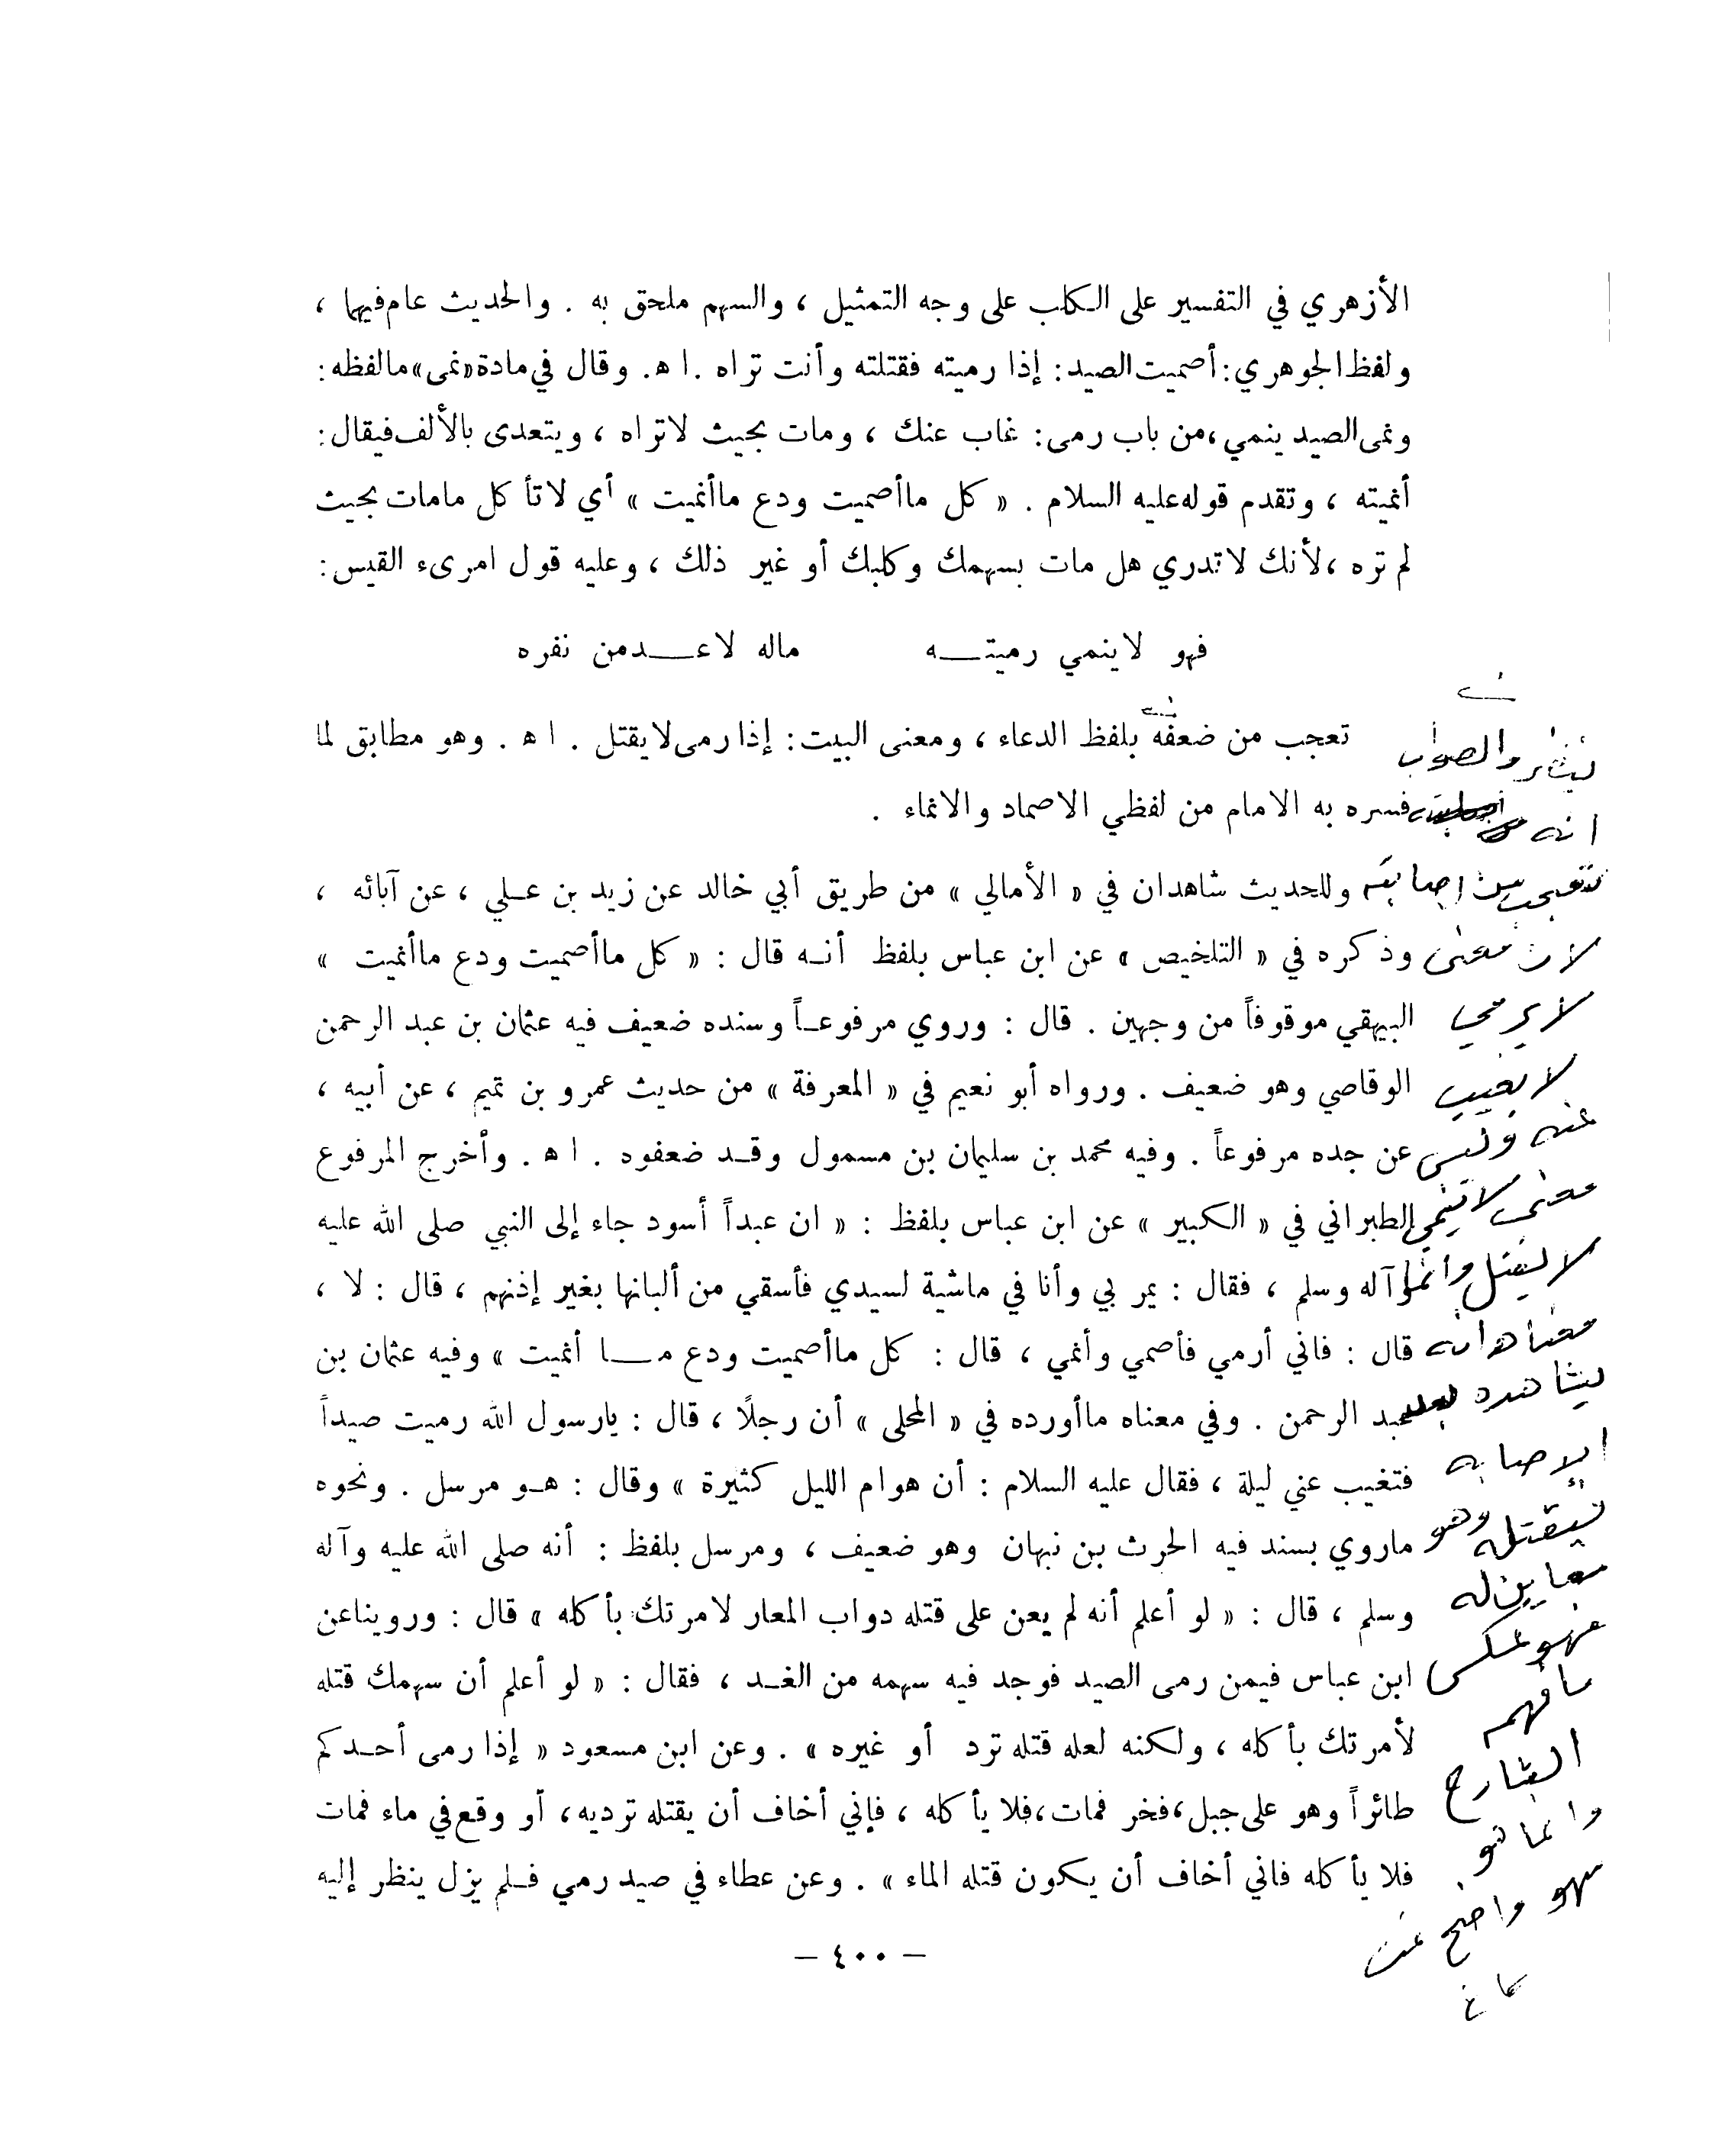 الأزهري في التفسير على الكلب على وجه التمثيل ، والسهم ملحق به . والحديث عام فيهما ،
ولفظ الجوهري : أصميت الصيد : إذا رميته فقتلته وأنت تراه . ا ه . وقال في مادة « نمى » مالفظه :
ونمى الصيد ينمي ، من باب رمى : غاب عنك ، ومات بحيث لاتراه ، ويتعدى بالألف فيقال :
أنميته ، وتقدم قوله عليه السلام . « كل ماأصميت ودع ماأنميت » أي لاتأكل مامات بحيث
لم تره ، لأنك لاتدري هل مات بسهمك وكلبك أو غير ذلك ، وعليه قول امرىء القيس :
فهو لاينمي رميتــه ماله لاعــد من نفره
تعجب من ضعفه بلفظ الدعاء ، ومعنى البيت : إذا رمى لايقتل . ا ه . وهو مطابق لما
فسره به الامام من لفظي الاصماد والانماء .
وللحديث شاهدان في « الأمالي » من طريق أبي خالد عن زيد بن عـلي ، عن آبائه ،
وذكره في « التلخيص » عن ابن عباس بلفظ أنـه قال : « كل ماأصميت ودع ماأنميت »
البيهقي موقوفاً من وجهين . قال : وروي مرفوعـاً وسنده ضعيف فيه عثمان بن عبد الرحمن
الوقاصي وهو ضعيف . ورواه أبو نعيم في « المعرفة » من حديث عمرو بن تميم ، عن أبيه ،
عن جده مرفوعاً . وفيه محمد بن سليمان بن مسمول وقـد ضعفوه . ا ه . وأخرج المرفوع
الطبراني في « الكبير » عن ابن عباس بلفظ : « ان عبداً أسود جاء إلى النبي صلى الله عليه
وآله وسلم ، فقال : يمر بي وأنا في ماشية لسيدي فأسقي من ألبانها بغير إذنهم ، قال : لا ،
قال : فاني أرمي فأصمي وأنمي ، قال : كل ماأصميت ودع مــا أنميت » وفيه عثمان بن
عبد الرحمن . وفي معناه ماأورده في « المحلى » أن رجلًا ، قال : يارسول الله رميت صيداً
فتغيب عني ليلة ، فقال عليه السلام : أن هوام الليل كثيرة » وقال : هـو مرسل . ونحوه
ماروي بسند فيه الحرث بن نبهان وهو ضعيف ، ومرسل بلفظ : أنه صلى الله عليه وآله
وسلم ، قال : « لو أعلم أنه لم يعن على قتله دواب المعار لامرتك بأكله » قال : ورويناعن
ابن عباس فيمن رمى الصيد فوجد فيه سهمه من الغـد ، فقال : « لو أعلم أن سهمك قتله
لأمرتك بأكله ، ولكنه لعله قتله ترد أو غيره » . وعن ابن مسعود « إذا رمى أحـدكم
طائراً وهو على جبل ، فخر فمات ، فلا يأكله ، فإني أخاف أن يقتله ترديه ، أو وقع في ماء فمات
فلا يأكله فاني أخاف أن يكون قتله الماء » . وعن عطاء في صيد رمي فـلم يزل ينظر إليه
– ٤٠٠ –
والصواب
انه
تعجب من إصابته
لان معنى
لا يرمي
لا يغيب
عنه وليس
معنى لا ينمي
لا يقتل وانما
معناه انه
يشاهده بعد
الإصابه
فيقتله وهو
معاين له
فهو عكس
ما فهم
الشارح
وانما هو
سهو واضح